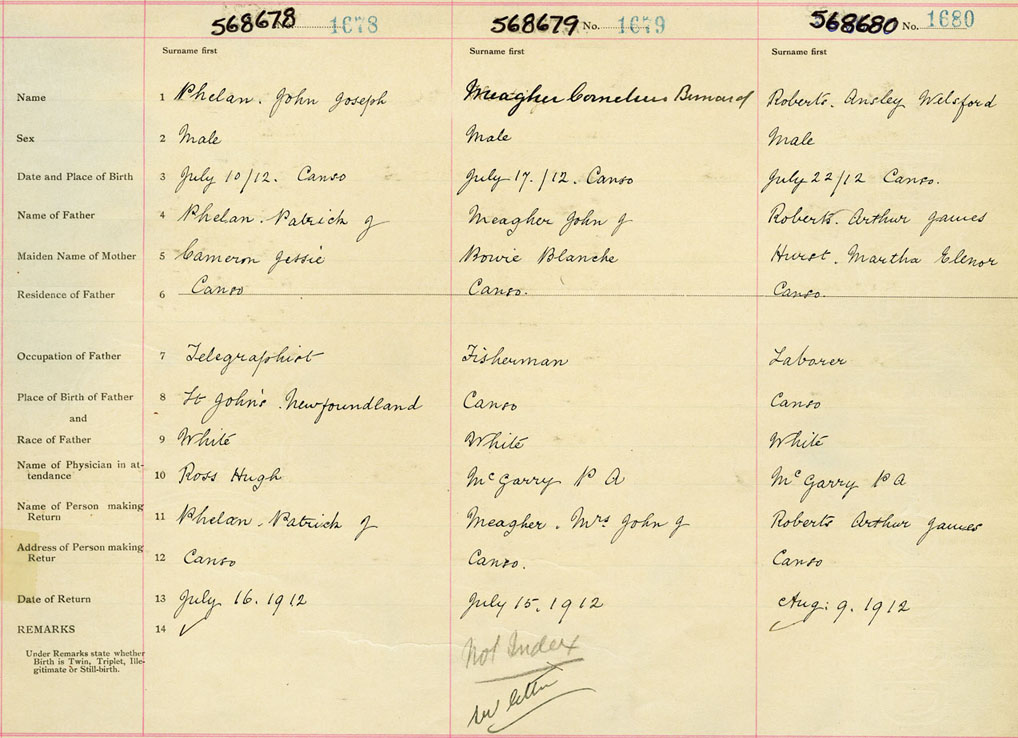 568678 No. 1678 568679 No. 1679 568680 No. 1680
Surname first Surname first Surname first
Name 1 Phelan. John Joseph Meagher Cornelius Bernard Roberts. Ansley Welsford
Sex 2 Male Male Male
Date and Place of Birth 3 July 10/12. Canso July 17./12. Canso July 22/12 Canso.
Name of Father 4 Phelan. Patrick J Meagher John J Roberts. Arthur James
Maiden Name of Mother 5 Cameron Jessie Bowie Blanche Hurst. Martha Elenor
Residence of Father 6 Canso Canso. Canso.
Occupation of Father 7 Telegraphist Fisherman Laborer
Place of Birth of Father 8 St John's. Newfoundland Canso Canso
and
Race of Father 9 White White White
Name of Physician in at-
tendance 10 Ross Hugh McGarry P A McGarry P A
Name of Person making
Return 11 Phelan. Patrick J Meagher. Mrs John J Roberts Arthur James
Address of Person making
Retur 12 Canso Canso. Canso
Date of Return 13 July 16. 1912 July 15. 1912 Aug: 9. 1912
REMARKS 14
Under Remarks state whether
Birth is Twin, Triplet, Ille-
gitimate or Still-birth.
Not Index
letter